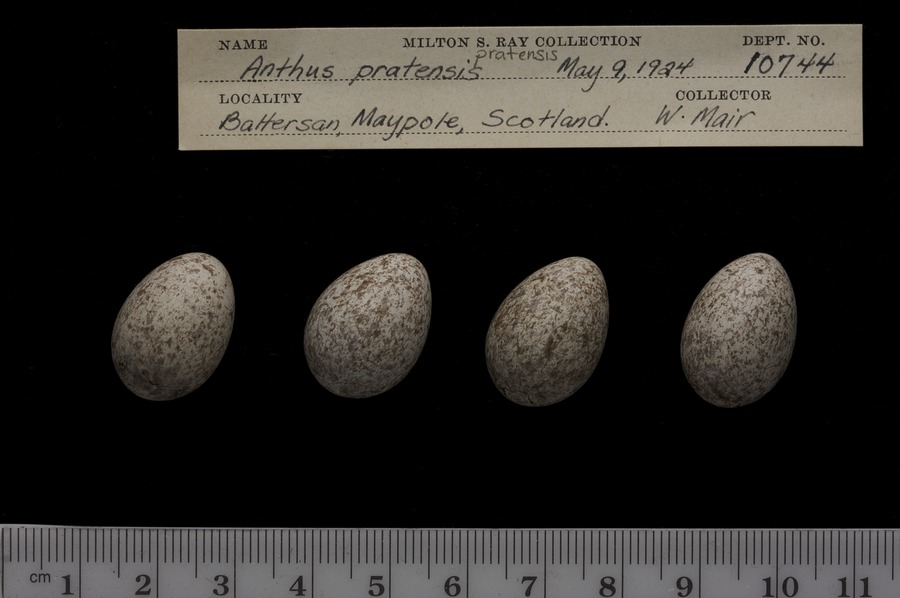 NAME MILTON S. RAY COLLECTION DEPT. NO.
pratensis
Anthus pratensis May 9, 1924 10744
LOCALITY COLLECTOR
Battersan, Maypole, Scotland. W. Mair
cm 1 2 3 4 5 6 7 8 9 10 11